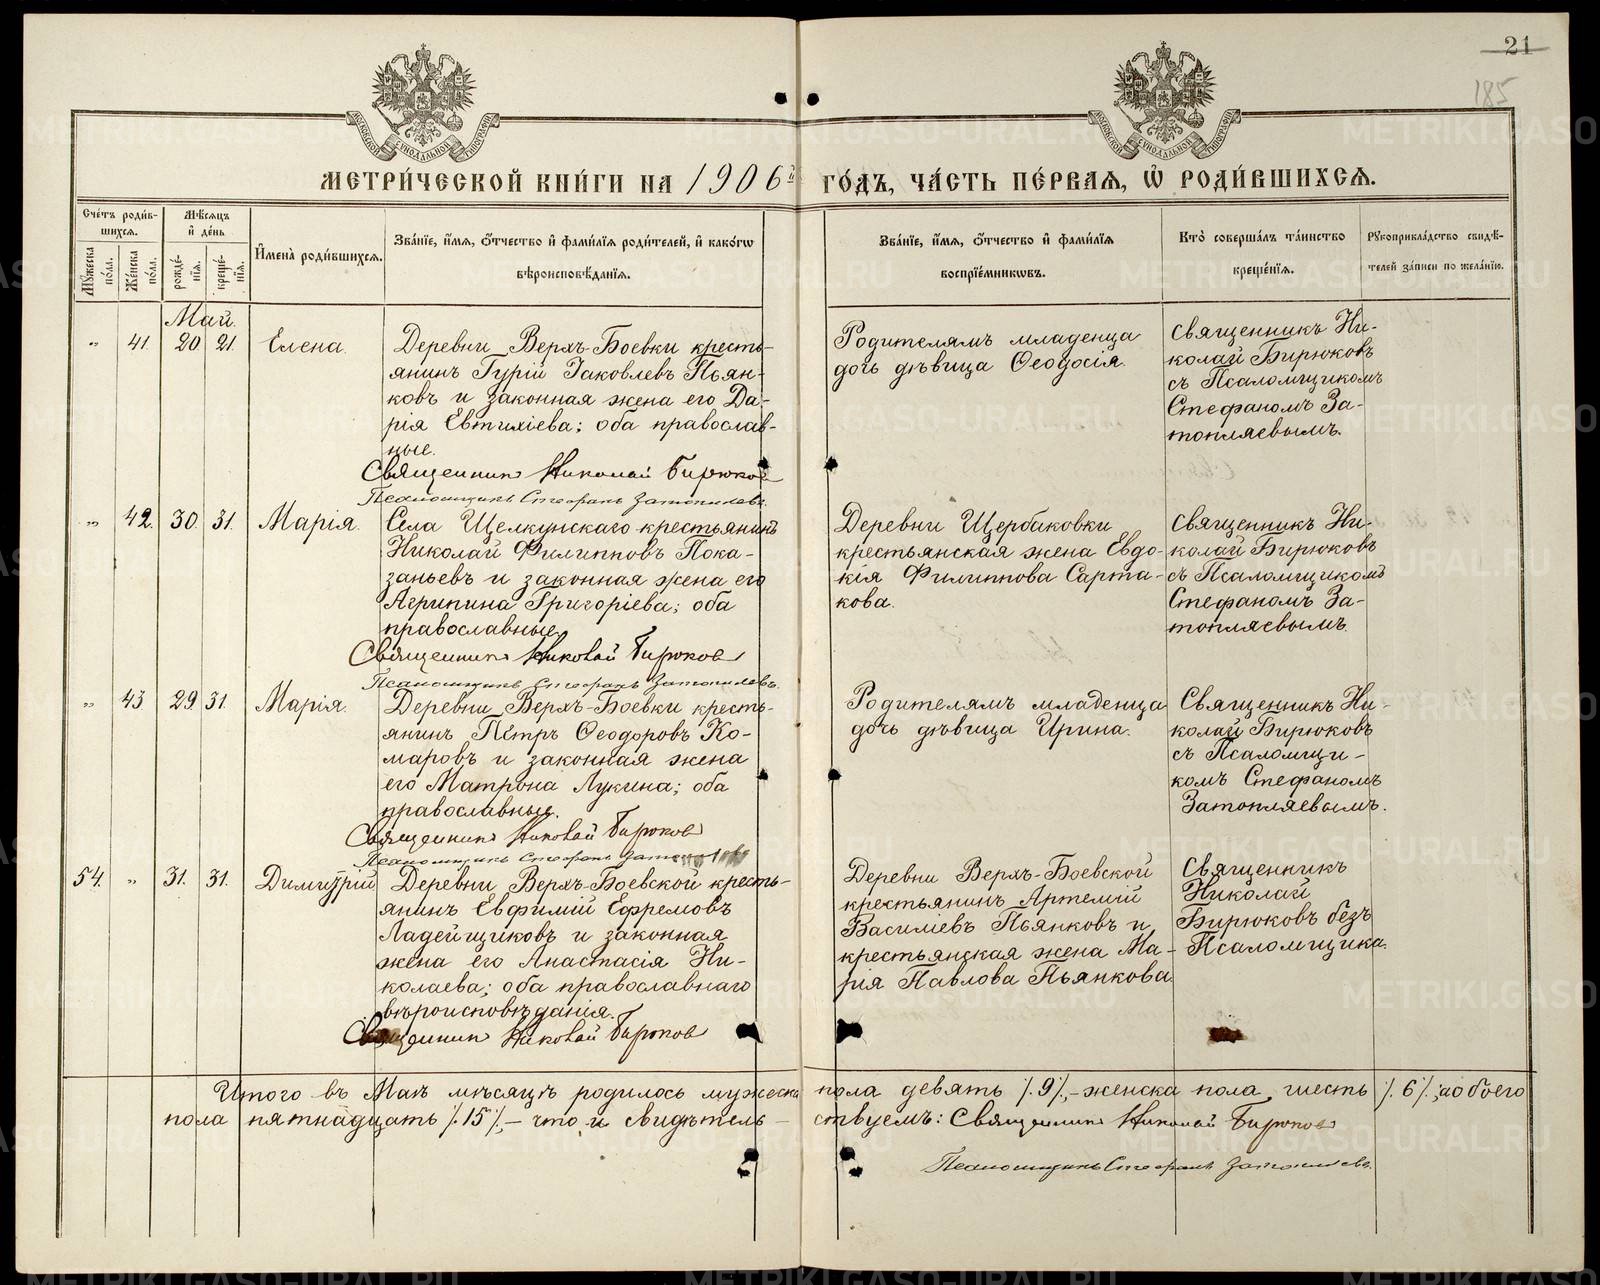 21
185
МЕТРИ́ЧЕСКОЙ КНИ́ГИ НА 1906й ГО́ДЪ, ЧА́СТЬ ПЕ́РВАЯ, Ѽ РОДИ́ВШИХСЯ.
Сче́тъ роди́в-
шихся.
Мѣ́сяцъ
и҆ де́нь
Мꙋ́жеска
по́ла.
Же́нска
по́ла.
рожде́-
нїѧ.
креще́-
нїѧ.
И҆мена̀ роди́вшихся.
Зва́нїе, и҆́мѧ, ѻ҆́тчество и҆ фами́лїѧ роди́телей, и҆ како́гѡ
вѣроисповѣ́данїѧ.
Зва́нїе, и҆́мѧ, ѻ҆́тчество и҆ фами́лїѧ
воспрїе́мникѡвъ.
Кто̀ соверша́лъ та́инство
креще́нїѧ.
Рꙋкоприкла́дство свидѣ́-
телей за́писи по жела́нїю.
Май.
" 41. 20 21. Елена.
Деревни Верхъ-Боевки кресть-
янинъ Гурій Іаковлевъ Пьян-
ковъ и законная жена его Да-
рія Евтихіева; оба православ-
ные.
Священникъ Николай Бирюков
Псаломщикъ Стефанъ Затопляевъ.
Родителямъ младенца
дочь дѣвица Ѳеодосія.
Священникъ Ни-
колай Бирюковъ
съ Псаломщикомъ
Стефаномъ За-
топляевымъ.
" 42. 30. 31. Марія.
Села Щелкунскаго крестьянинъ
Николай Филипповъ Пока-
заньевъ и законная жена его
Агрипина Григоріева; оба
православные.
Священникъ Николай Бирюков
Псаломщикъ Стефанъ Затопляевъ.
Деревни Щербаковки
крестьянская жена Евдо-
кія Филиппова Сарта-
кова.
Священникъ Ни-
колай Бирюковъ
съ Псаломщикомъ
Стефаномъ За-
топляевымъ.
" 43 29. 31. Марія.
Деревни Верхъ-Боевки кресть-
янинъ Петръ Ѳеодоровъ Ко-
маровъ и законная жена
его Матрона Лукина; оба
православные.
Священникъ Николай Бирюков
Псаломщикъ Стефанъ Затопляевъ
Родителямъ младенца
дочь дѣвица Ирина.
Священникъ Ни-
колай Бирюковъ
съ Псаломщи-
комъ Стефаномъ
Затопляевымъ.
54. " 31. 31. Димитрій
Деревни Верхъ-Боевской кресть-
янинъ Евфимій Ефремовъ
Ладейщиковъ и законная
жена его Анастасія Ни-
колаева; оба православнаго
вѣроисповѣданія.
Священник Николай Бирюков
Деревни Верхъ-Боевской
крестьянинъ Артемій
Василіевъ Пьянковъ и
крестьянская жена Ма-
рія Павлова Пьянкова.
Священникъ
Николай
Бирюковъ безъ
Псаломщика.
Итого въ Маѣ мѣсяцѣ родилось мужеска пола девять /.9/.,-женска пола шесть /.6/.; а обоего
пола пятнадцать /.15/.,- что и свидѣтель-ствуемъ: Священникъ Николай Бирюков
Псаломщикъ Стефанъ Затопляевъ.
METRIKI.GASO-URAL.RU